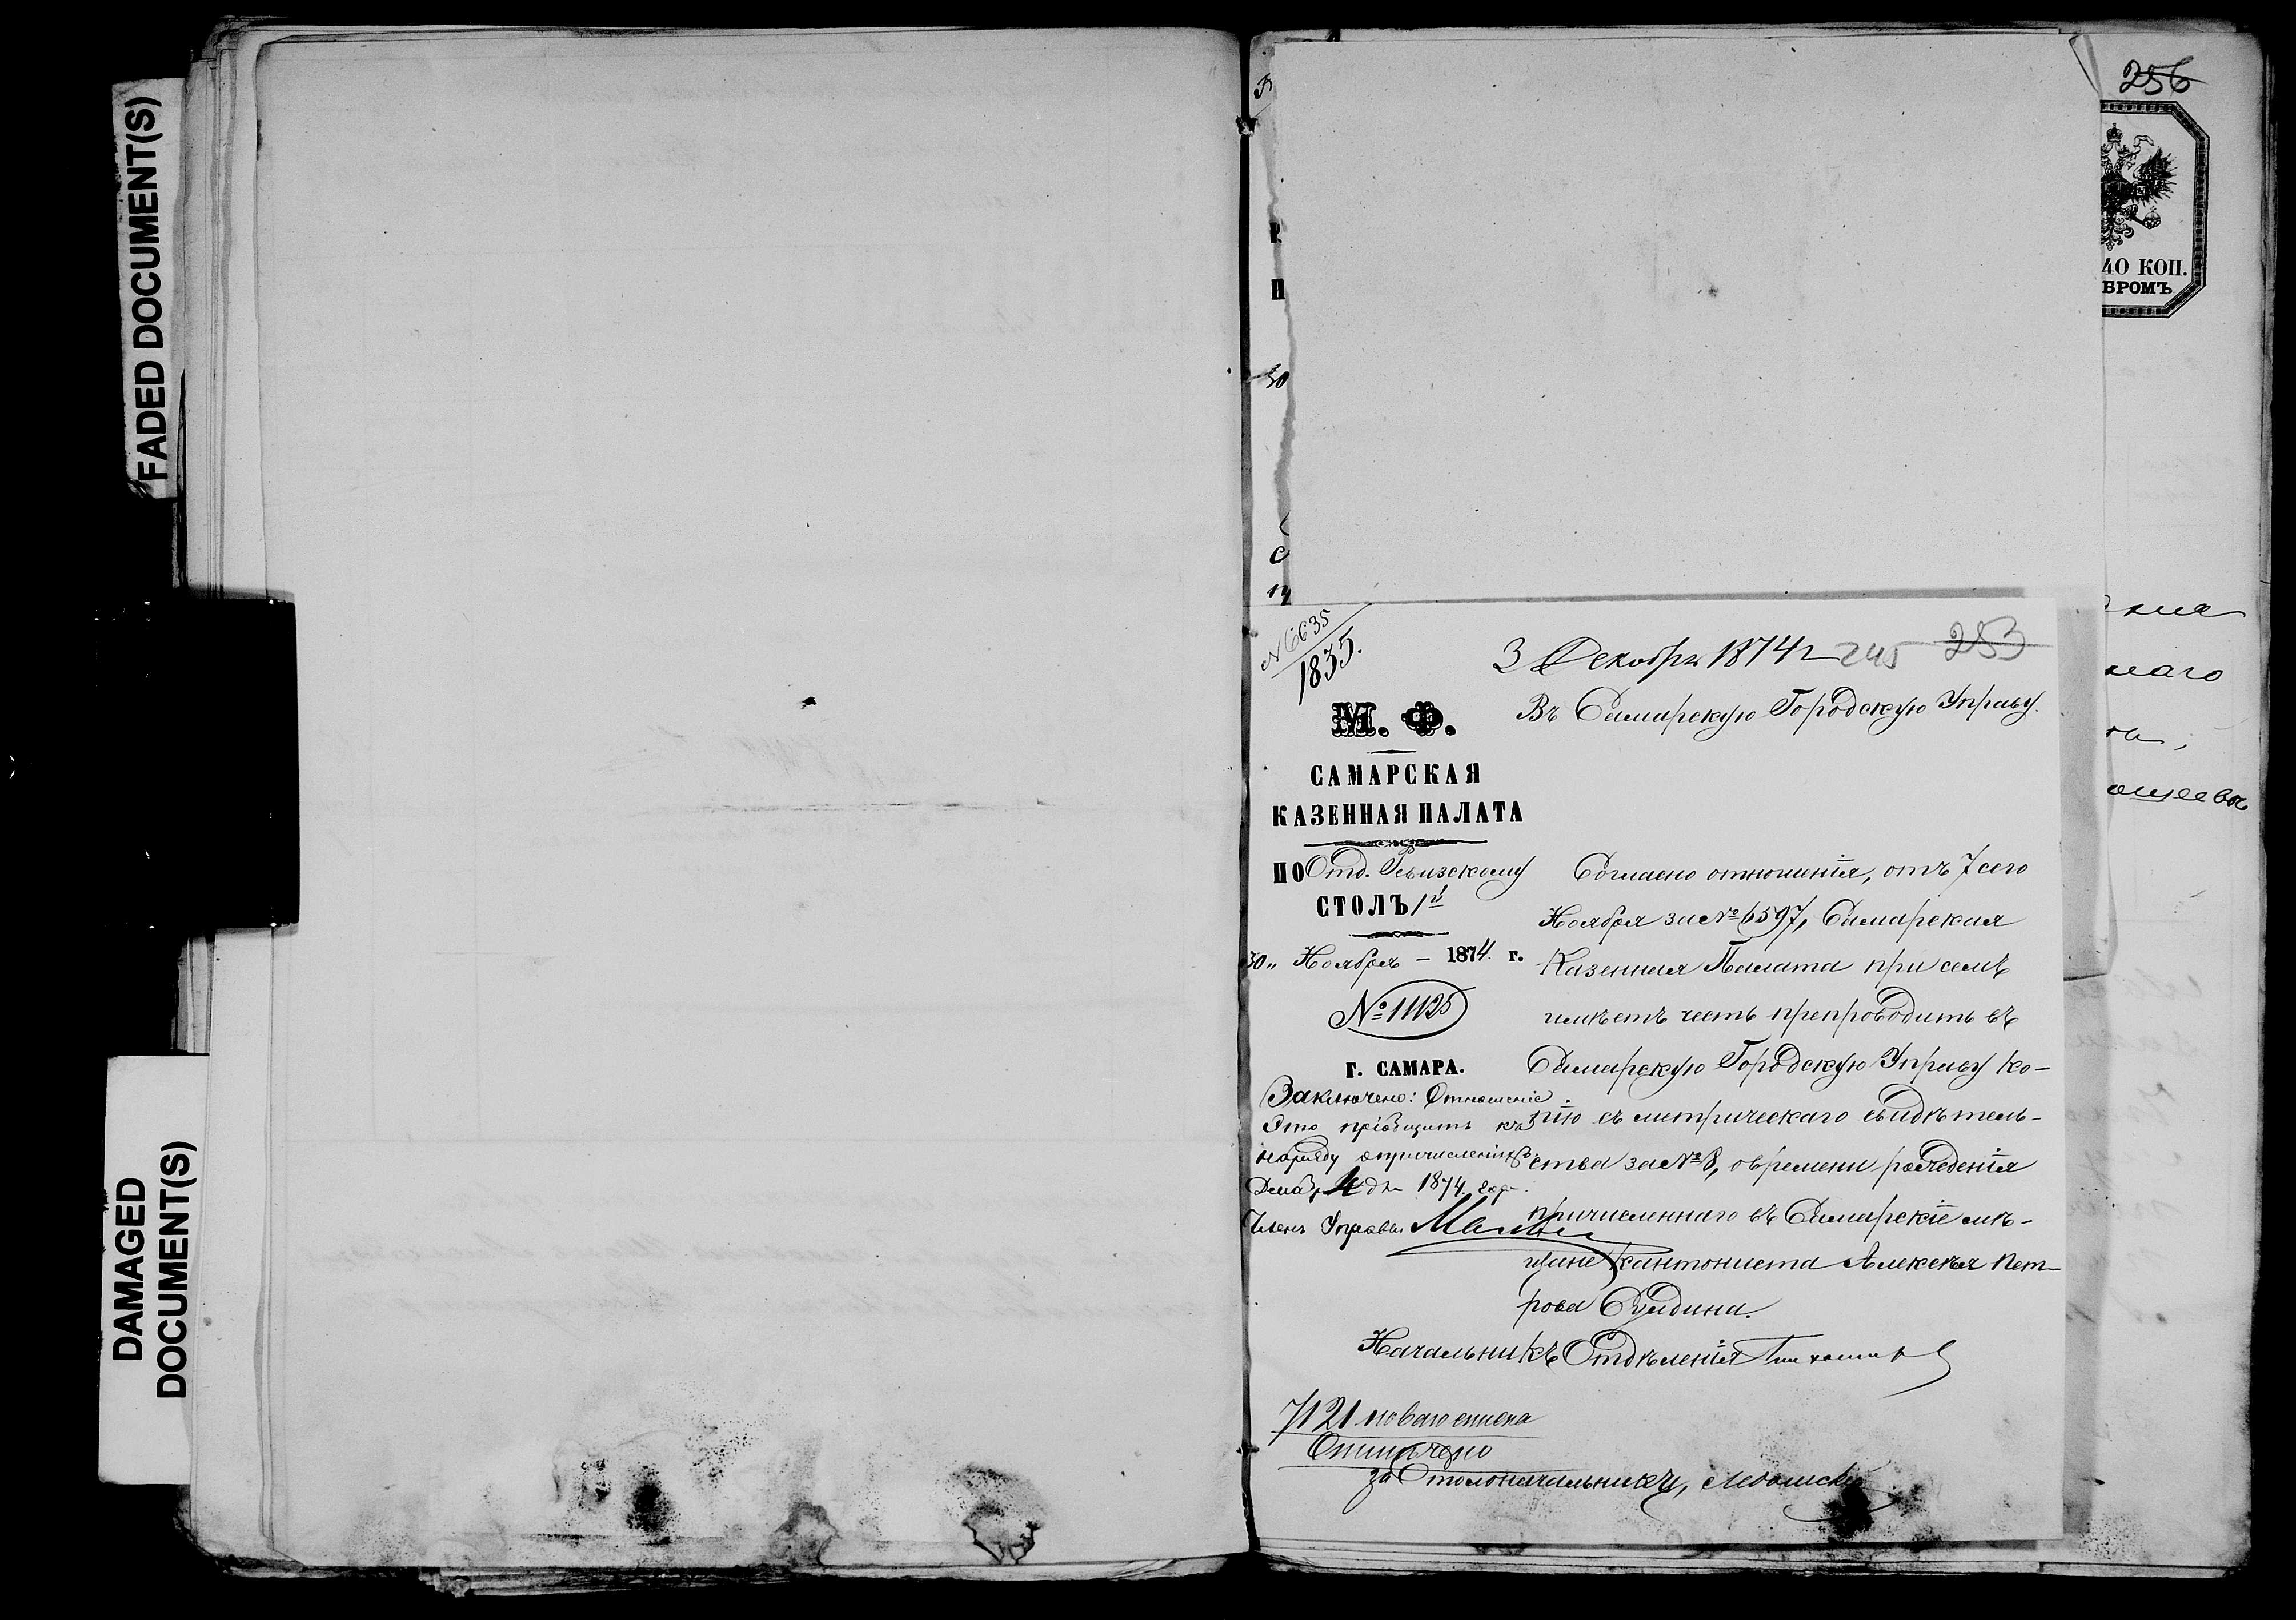 FADED DOCUMENT(S)
DAMAGED
DOCUMENT(S)
256
40 КОП.
БРОМЪ
наго
30
С
№ 6635
1835.
3 Декабря 1874 г 245 253
Въ Самарскую Городскую Управу.
М. Ф.
САМАРСКАЯ
КАЗЕННАЯ ПАЛАТА
ПО Отд. Ревизскому
СТОЛЪ 1й
30„ Ноября – 1874. г.
№ 11125
Г. САМАРА.
Согласно отношенія, отъ 7 сего
Ноября за № 6597, Самарская
Казенная Палата при семъ
имѣетъ честь препроводить въ
Самарскую Городскую Управу ко-
пію съ метрическаго свидѣтель-
ства за № 8, о времени рожденія
причисленнаго въ Самарскіе мѣ-
щане кантониста Алексѣя Пет-
рова
Заключено: Отношеніе
это пріобщить къ
наряду о причисленіи
Декаб 4 дн 1874 года.
Членъ Управы
Начальникъ Отдѣленія
7121 новаго списка
Отмѣчено
за Столоначальника,